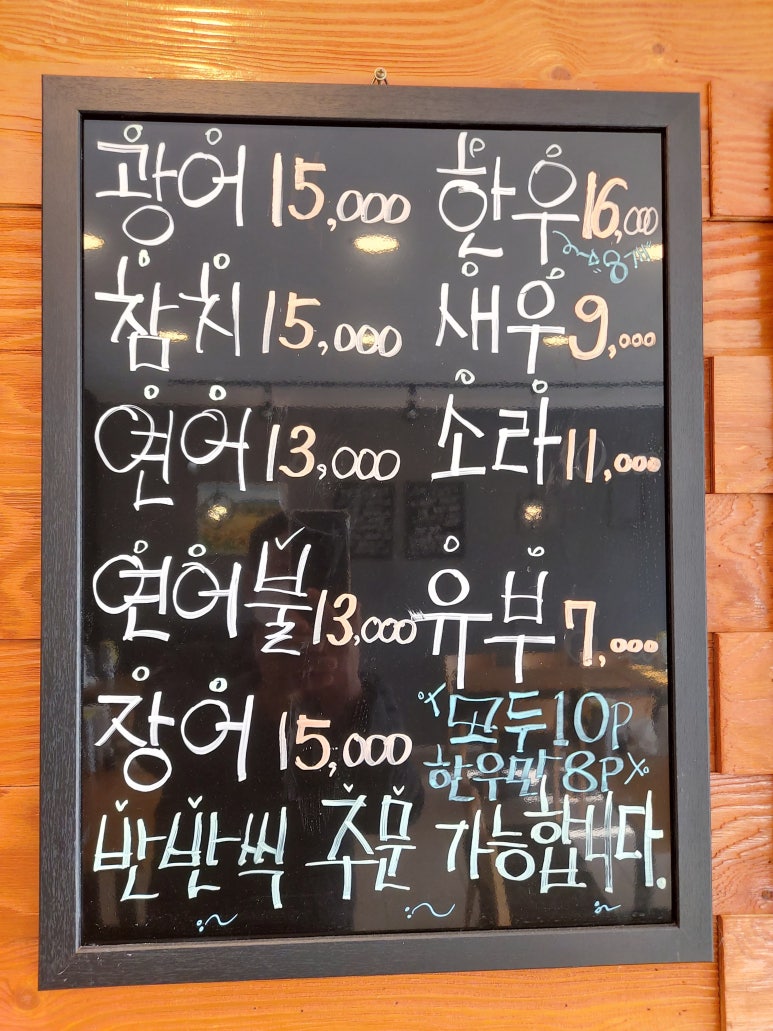 광어 15,000 한우 16,000
8개
참치 15,000 새우 9,000
연어 13,000 소라 11,000
연어불 13,000 유부 7,000
장어 15,000
모두 10P
한우만 8P
반반씩 주문 가능합니다.